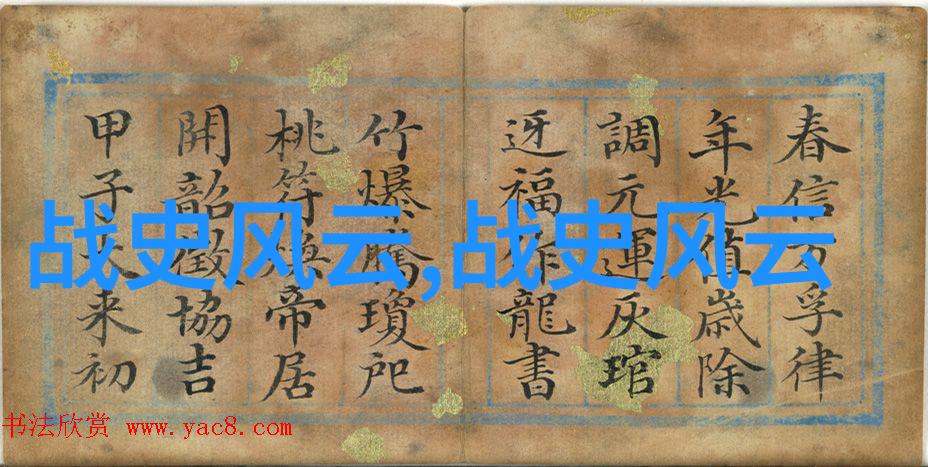 春信孚律
年光值歲除
調元運灰琯
迓福龍書
竹爆騰瓊
桃符煥帝居
開韶徵協吉
甲子来初
战史风云,战史风云
书法欣赏 www.yac8.com